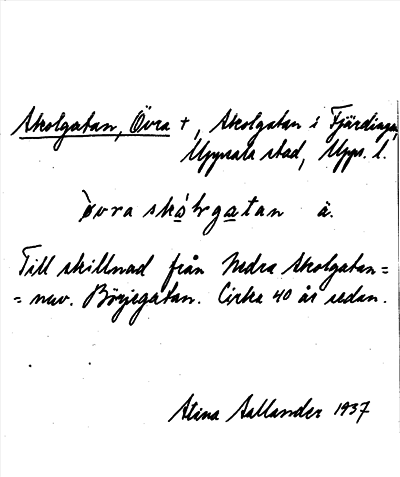 Skolgatan, Övra +, Skolgatan i Fjärdingen,
Uppsala stad, Upps. l.
òvra skólrgatan ä.
Till skillnad från Nedra Skolgatan =
= nuv. Börjegatan. Cirka 40 år sedan.
Stina Sallander 1937